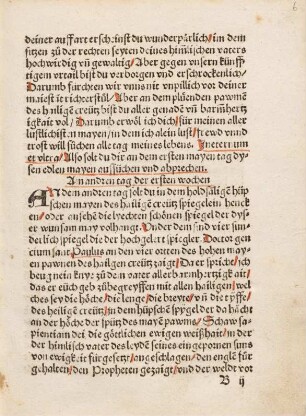 6
deiner auffart erscheinst du wunderparlich/ im dem
sitzen zů der rechten seyten deines himlischen vaters
hochwirdig vñ gewaltig/ Aber gegen vnsern künff
tigem vrtail bist du verborgen vnd erschrockenlich/
Darumb fürchten wir vnns nit vnpillich vor deiner
maiestet richterstůl/ Aber an dem plůenden pawmē
des hailigē creütz bist du aller genadē vñ barmhertz
igkait vol/ Darumb erwöl ich dich/ für meinen aller
lustlichistn mayen/ in dem ich alein lust/ frewd vnnd
trost will süchen alle tag meines lebens. In eternum
et vltra/ Also solt du dir an dem ersten mayen tag dy
sen edlen mayen aufsüchen vnd abprechen.
An andren tag der ersten wochen
AN dem andren tag solt du in dem holdsäligē hüp
schen mayen des hailigē creütz spiegelein hencken
/ oder ansehē die lyechtern schönen spiegel der dy
ser wunsam may volhangt/ Vnder dem sind vier sun
derlich spiegel die der hochgelert spiegler Doctor gen
cium sanct Paulus an den vier ortten des hohen may
en pawmen des hailgen creütz zaigt/ Da er spricht/ ich
beug mein knye zů dem vater aller barmhertzigkait/
das er euch geb zůbegreyffen mit allen hailigen/ wel
ches sey die höche/ die lenge/ die breyte/ vñ die tyeffe/
des heiligē creütz/ in dem hüpschē spiegel der sapienci
an der höche der spitz des mayē pawms/ Schaw sa
pienciam dei die götlichen ewigen weißhait/ in der
der himlisch vater das leyden seines eingepornen suns
von ewigkait fürgesetzt/ angeschlagen/ den englē für
gehalten/ den Propheten gezaigt/ vnd der welt vor
B ij